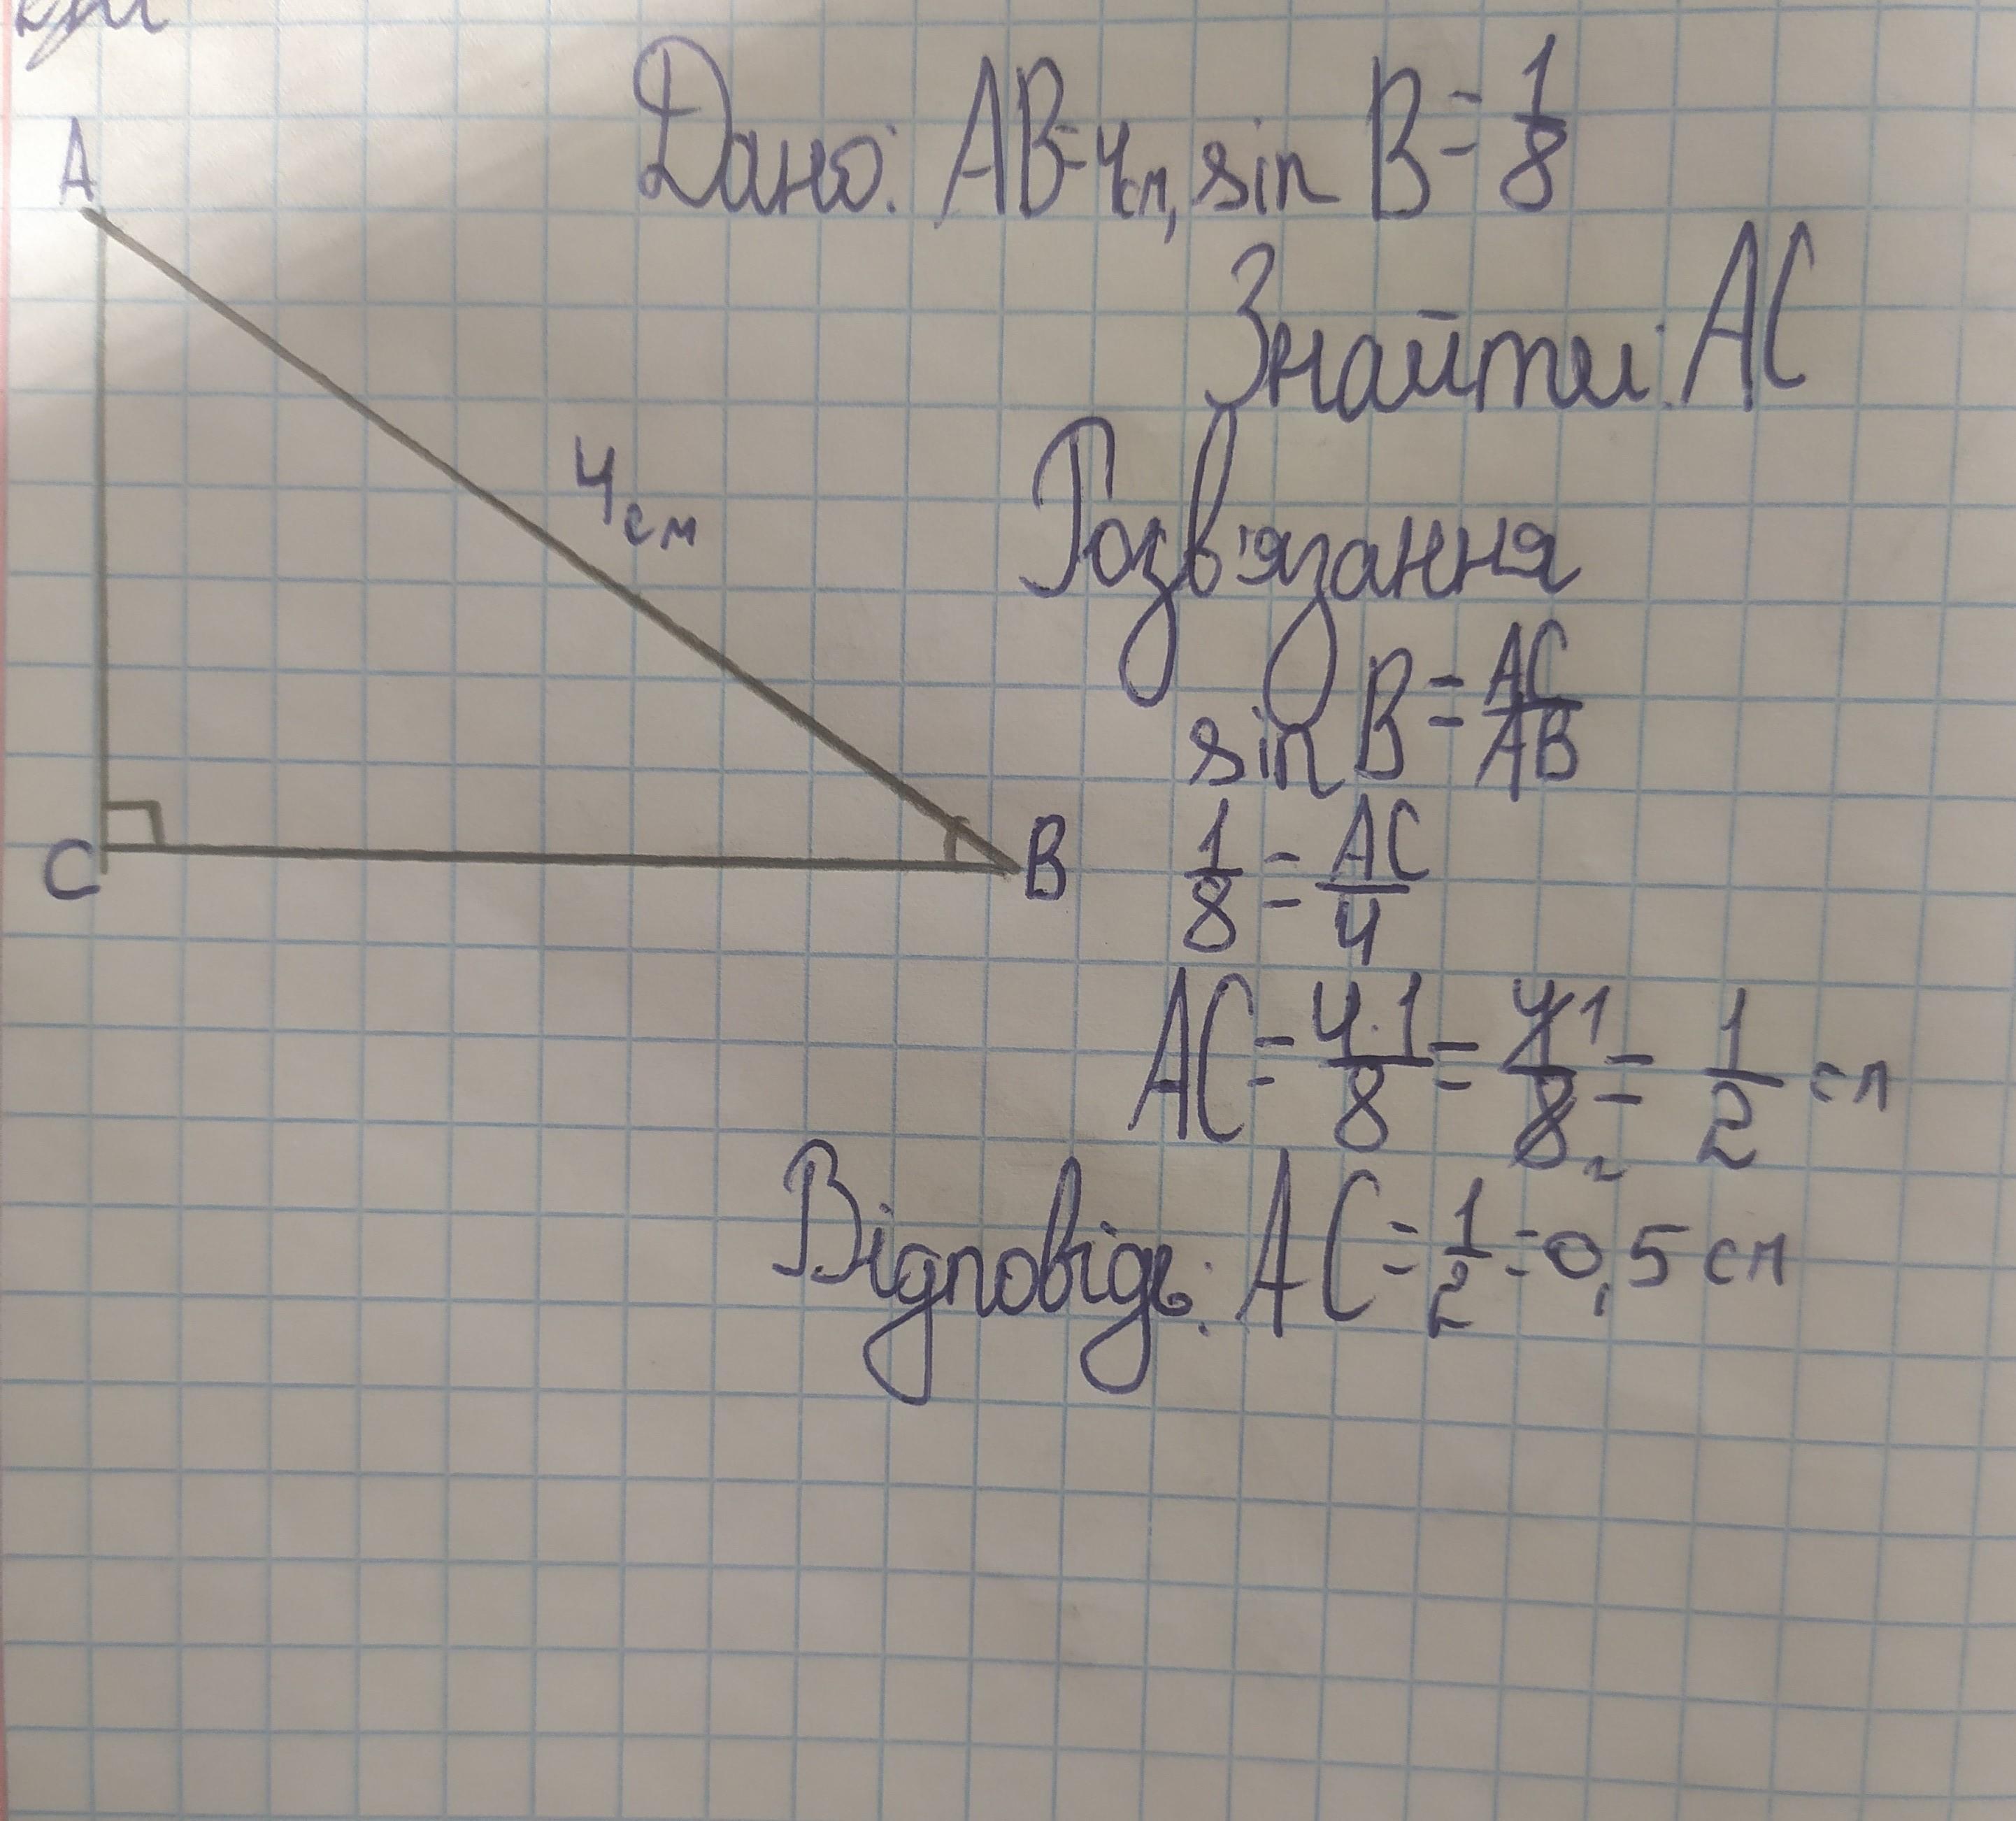 Дано: AB=4см, sin B = 1/8
Знайти: AC
A
4см
C
B
Розв'язання
sin B = AC/AB
1/8 = AC/4
AC = 4·1/8 = 4 1/8 2 = 1/2 см
Відповідь: AC = 1/2 = 0,5 см